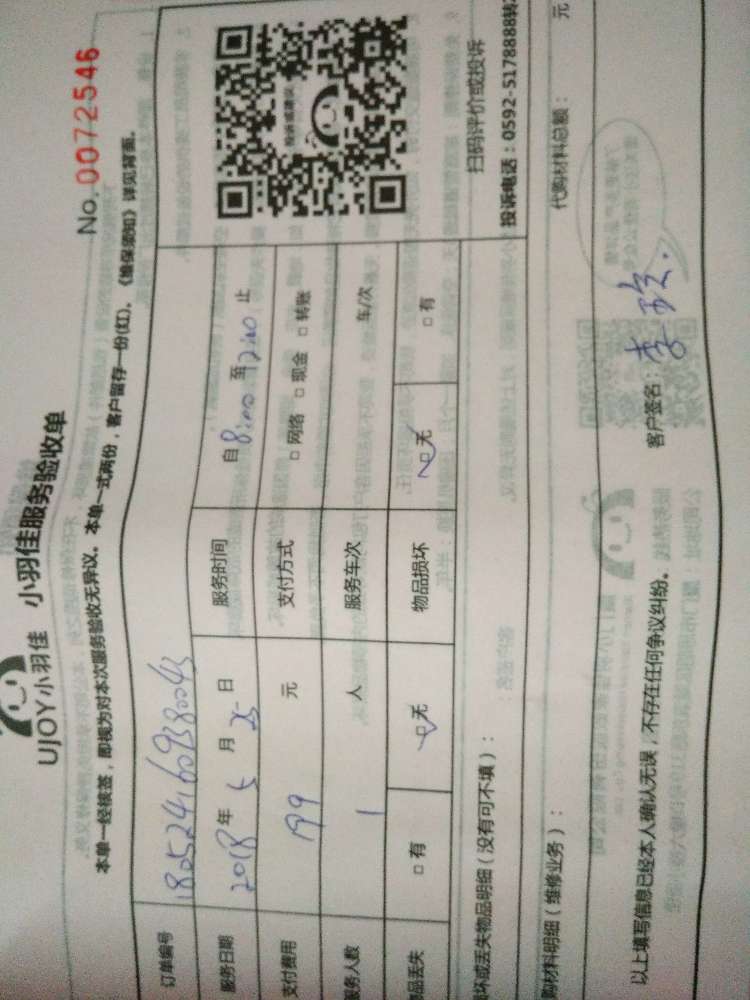 No. 0072546
UJOY小羽佳 小羽佳服务验收单
本单一经核签，即视为对本次服务验收无异议。本单一式两份，客户留存一份(红)。《维保须知》详见背面。
订单编号 180524160938004
服务日期 2018年5月25日 服务时间 自8:00至12:00止
支付费用 199元 支付方式 □网络 □现金 □转账
服务人数 1人 服务车次 车/次
品丢失 □有 □无 物品损坏 □无 □有
投诉或建议
扫码评价或投诉
投诉电话：0592-5178888转
坏或丢失物品明细（没有可不填）：
购材料明细（维修业务）： 代购材料总额： 元
以上填写信息已经本人确认无误，不存在任何争议纠纷。 客户签名：李